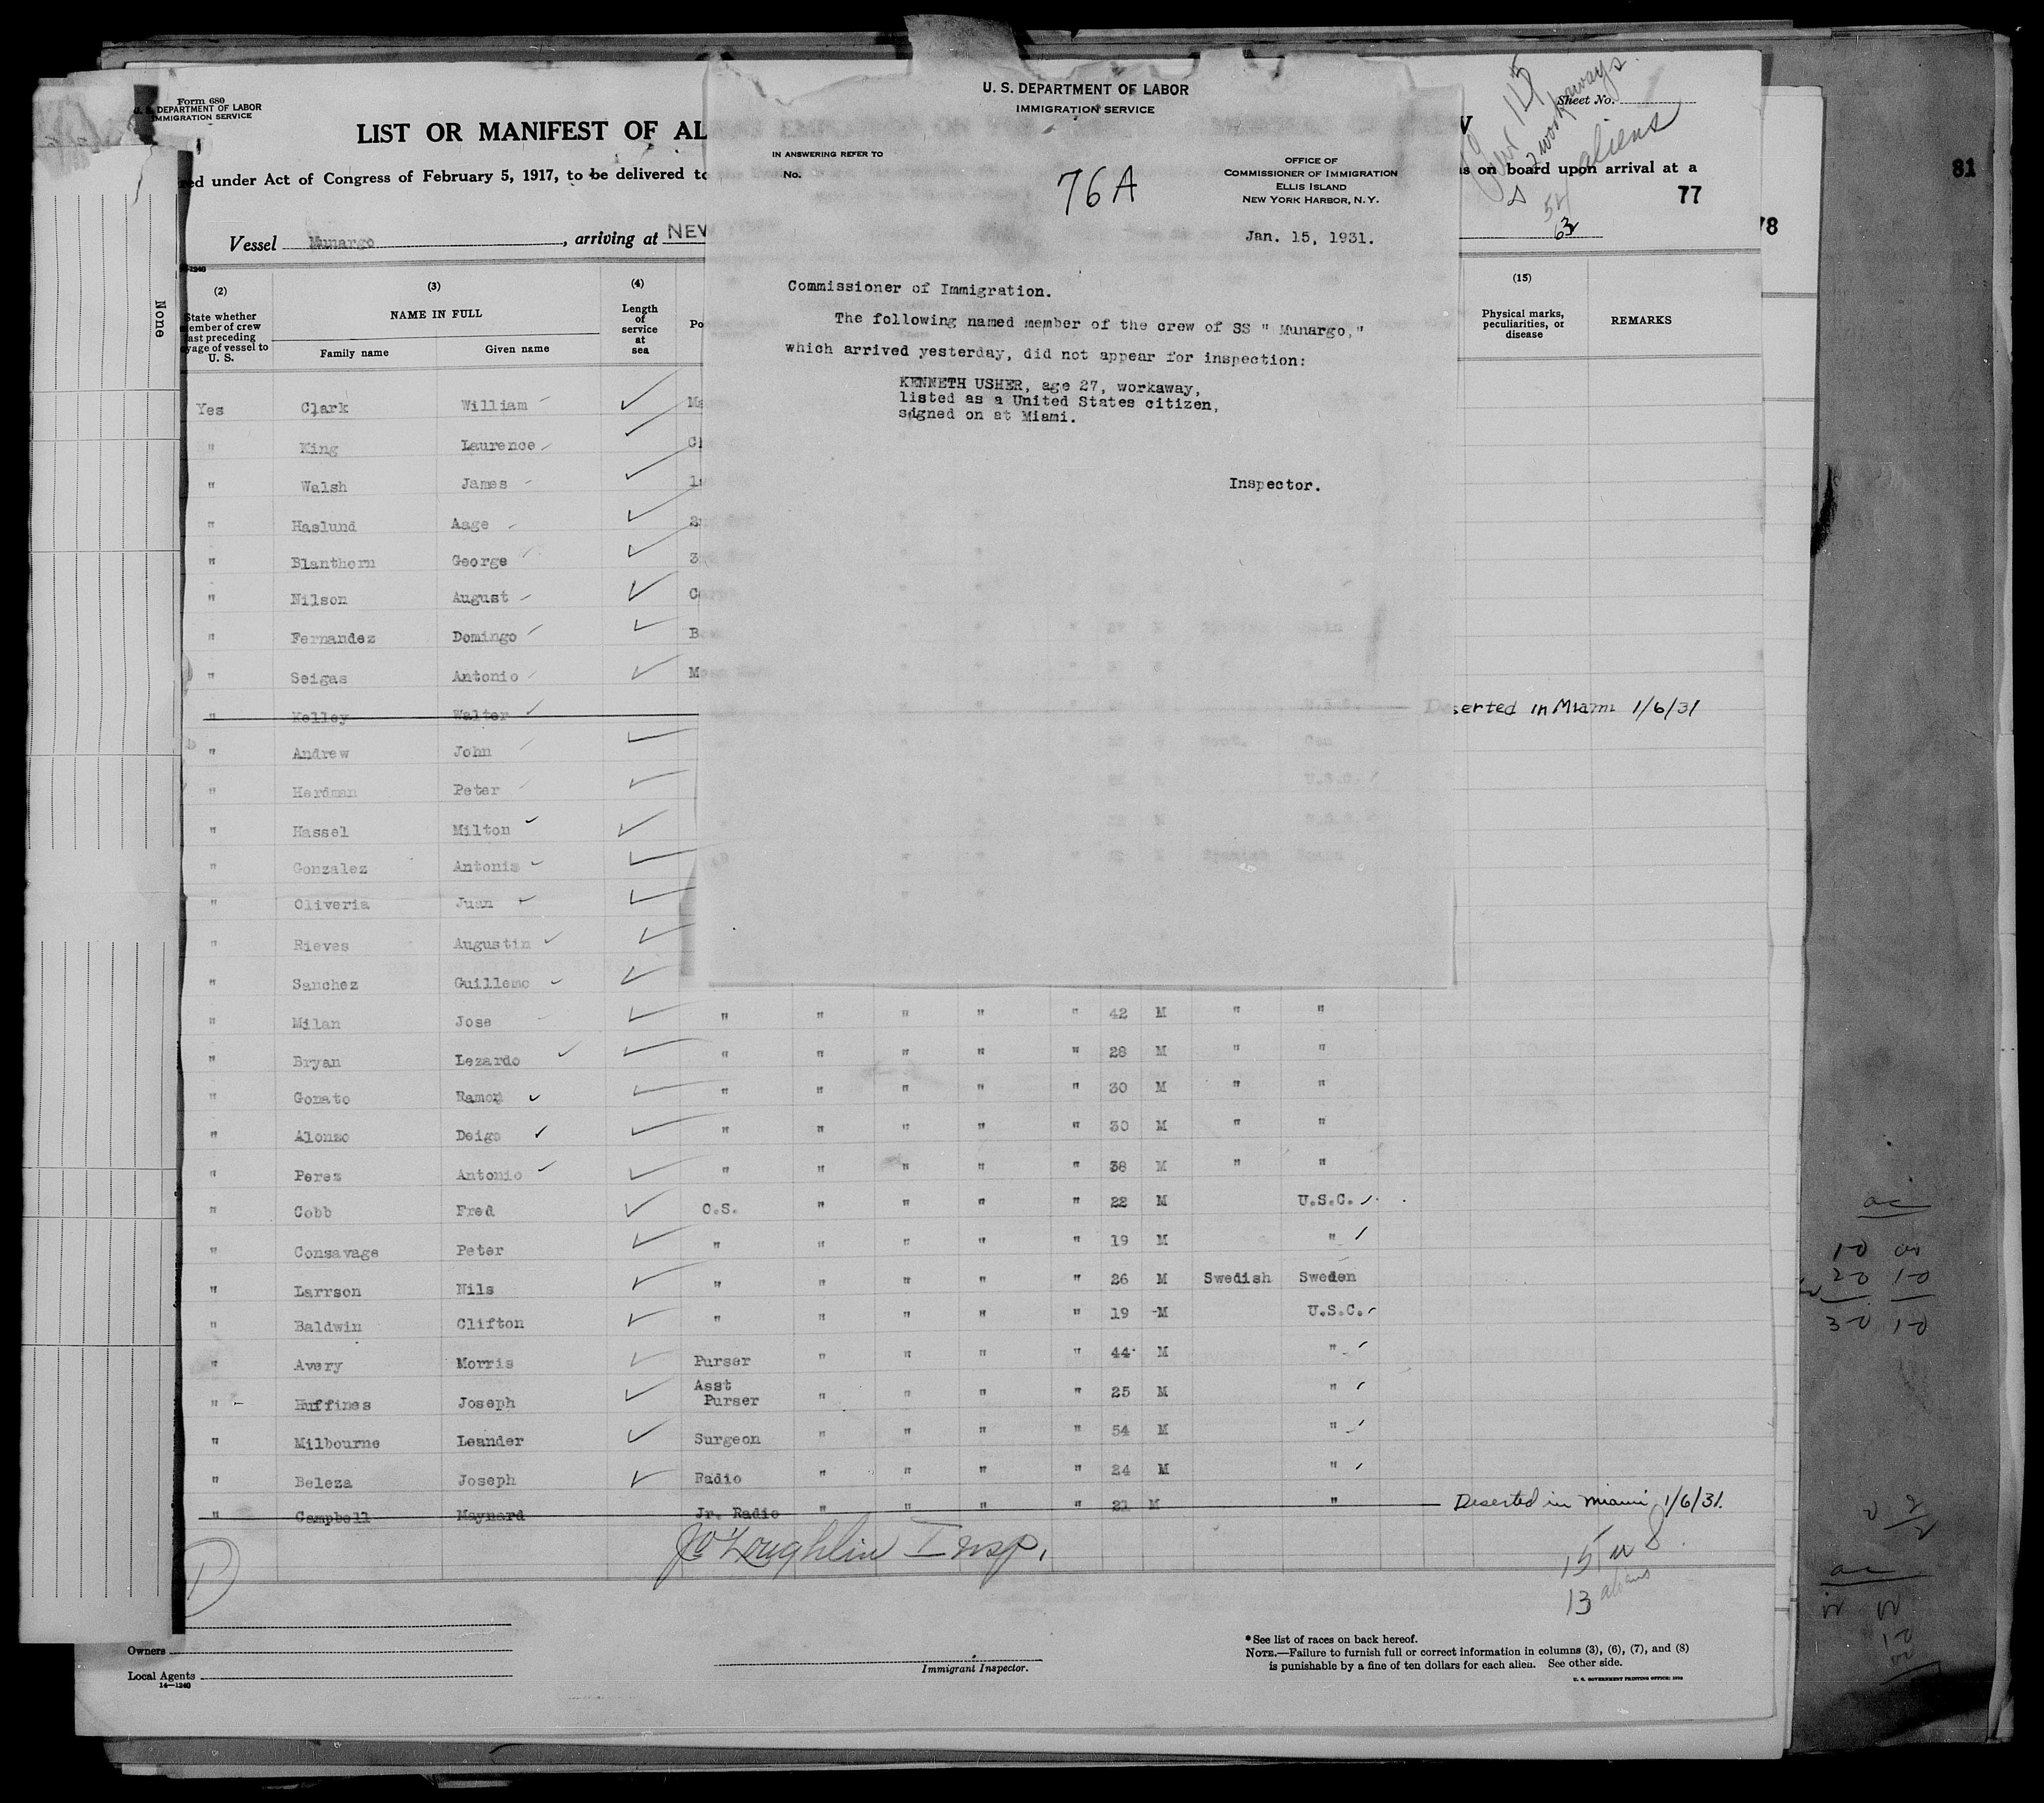 Form 680
U. S. DEPARTMENT OF LABOR
IMMIGRATION SERVICE
LIST OR MANIFEST OF AL
red under Act of Congress of February 5, 1917, to be delivered to
Vessel Munargo, arriving at NEW
(2) (3) (4)
State whether member of crew last preceding voyage of vessel to U. S.
NAME IN FULL
Family name Given name
Length of service at sea
Po
None
U. S. DEPARTMENT OF LABOR
IMMIGRATION SERVICE
IN ANSWERING REFER TO
No.
76A
OFFICE OF
COMMISSIONER OF IMMIGRATION
ELLIS ISLAND
NEW YORK HARBOR, N.Y.
Jan. 15, 1931.
Commissioner of Immigration.
The following named member of the crew of SS " Munargo,"
which arrived yesterday, did not appear for inspection:
KENNETH USHER, age 27, workaway,
listed as a United States citizen,
signed on at Miami.
Inspector.
Sheet No.
2 workaways
aliens
s on board upon arrival at a
77
78
81
(15)
Physical marks, peculiarities, or disease
REMARKS
Yes Clark William
" Ming Laurence
" Walsh James
" Haslund Aage
" Blanthorn George
" Nilson August
" Fernandez Domingo
" Seigas Antonio
" Kelley Walter serted in Miami 1/6/31
" Andrew John
" Herdman Peter
" Hassel Milton
" Gonzalez Antonio
" Oliveria Juan
" Rieves Augustin
" Sanchez Guillemo
" Milan Jose " " " " " 42 M " "
" Bryan Lezardo " " " " " 28 M " "
" Gonato Ramon " " " " " 30 M " "
" Alonzo Deigo " " " " " 30 M " "
" Perez Antonio " " " " " 38 M " "
" Cobb Fred O.S. " " " " 22 M U.S.C.
" Consavage Peter " " " " " 19 M "
" Larrson Nils " " " " " 26 M Swedish Sweden
" Baldwin Clifton " " " " " 19 M U.S.C.
" Avery Morris Purser " " " " 44 M "
" Huffines Joseph Asst Purser " " " " 25 M "
" Milbourne Leander Surgeon " " " " 54 M "
" Beleza Joseph Radio " " " " 24 M "
" Campbell Maynard Jr. Radio " " " " 21 M " Deserted in Miami 1/6/31.
Insp.
13 aliens
Owners
Local Agents
14—1240
Immigrant Inspector.
* See list of races on back hereof.
NOTE.—Failure to furnish full or correct information in columns (3), (6), (7), and (8)
is punishable by a fine of ten dollars for each alien. See other side.
U. S. GOVERNMENT PRINTING OFFICE